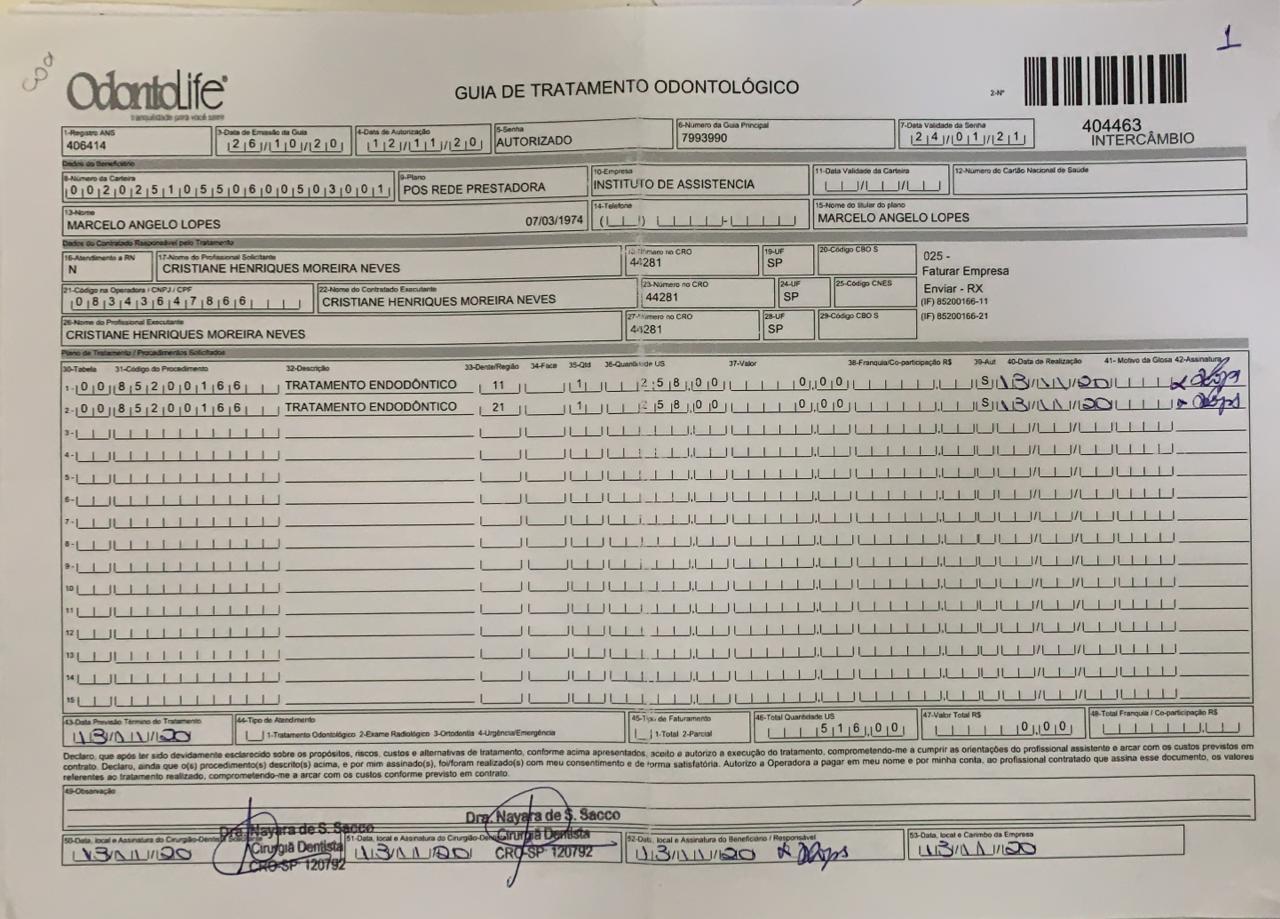 1
OdontoLife
tranquilidade para você sorrir
GUIA DE TRATAMENTO ODONTOLÓGICO
2-Nº
404463
INTERCÂMBIO
1-Registro ANS
406414
3-Data de Emissão da Guia
26/10/20
4-Data de Autorização
12/11/20
5-Senha
AUTORIZADO
6-Número da Guia Principal
7993990
7-Data Validade da Senha
24/01/21
Dados do Beneficiário
8-Número da Carteira
00202510550600503001
9-Plano
POS REDE PRESTADORA
10-Empresa
INSTITUTO DE ASSISTENCIA
11-Data Validade da Carteira
12-Número do Cartão Nacional de Saúde
13-Nome
MARCELO ANGELO LOPES 07/03/1974
14-Telefone
15-Nome do titular do plano
MARCELO ANGELO LOPES
Dados do Contratado Responsável pelo Tratamento
16-Atendimento a RN
N
17-Nome do Profissional Solicitante
CRISTIANE HENRIQUES MOREIRA NEVES
18-Número no CRO
44281
19-UF
SP
20-Código CBO S
025 -
Faturar Empresa
Enviar - RX
(IF) 85200166-11
(IF) 85200166-21
21-Código na Operadora / CNPJ / CPF
08343647866
22-Nome do Contratado Executante
CRISTIANE HENRIQUES MOREIRA NEVES
23-Número no CRO
44281
24-UF
SP
25-Código CNES
26-Nome do Profissional Executante
CRISTIANE HENRIQUES MOREIRA NEVES
27-Número no CRO
44281
28-UF
SP
29-Código CBO S
Plano de Tratamento / Procedimentos Solicitados
30-Tabela 31-Código do Procedimento 32-Descrição 33-Dente/Região 34-Face 35-Qtd 36-Quantidade US 37-Valor 38-Franquia/Co-participação R$ 39-Aut 40-Data de Realização 41- Motivo da Glosa 42-Assinatura
1- 00 85200166 TRATAMENTO ENDODÔNTICO 11 1 258,00 0,00 S 13/11/20
2- 00 85200166 TRATAMENTO ENDODÔNTICO 21 1 258,00 0,00 S 13/11/20
3-
4-
5-
6-
7-
8-
9-
10
11
12
13
14
15
43-Data Previsão Término do Tratamento
13/11/20
44-Tipo de Atendimento
1-Tratamento Odontológico 2-Exame Radiológico 3-Ortodontia 4-Urgência/Emergência
45-Tipo de Faturamento
1-Total 2-Parcial
46-Total Quantidade US
516,00
47-Valor Total R$
0,00
48-Total Franquia / Co-participação R$
Declaro, que após ter sido devidamente esclarecido sobre os propósitos, riscos, custos e alternativas de tratamento, conforme acima apresentados, aceito e autorizo a execução do tratamento, comprometendo-me a cumprir as orientações do profissional assistente e arcar com os custos previstos em
contrato. Declaro, ainda que o(s) procedimento(s) descrito(s) acima, e por mim assinado(s), foi/foram realizado(s) com meu consentimento e de forma satisfatória. Autorizo a Operadora a pagar em meu nome e por minha conta, ao profissional contratado que assina esse documento, os valores
referentes ao tratamento realizado, comprometendo-me a arcar com os custos conforme previsto em contrato.
49-Observação
50-Data, local e Assinatura do Cirurgião-Dentista
13/11/20
Dra. Nayara de S. Sacco
Cirurgiã Dentista
CRO-SP 120792
51-Data, local e Assinatura do Cirurgião-Dentista
13/11/20
Dra. Nayara de S. Sacco
Cirurgiã Dentista
CRO-SP 120792
52-Data, local e Assinatura do Beneficiário / Responsável
13/11/20
53-Data, local e Carimbo da Empresa
13/11/20